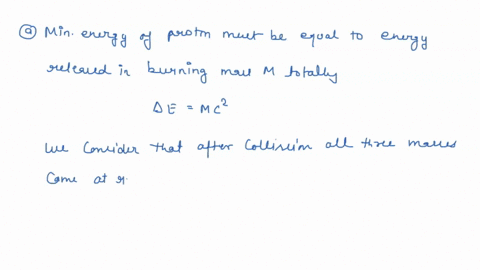 ⓐ Min. energy of protn must be equal to energy
released in burning mass M totally
ΔE = Mc²
We Consider that after Collision all three masses
Come at r